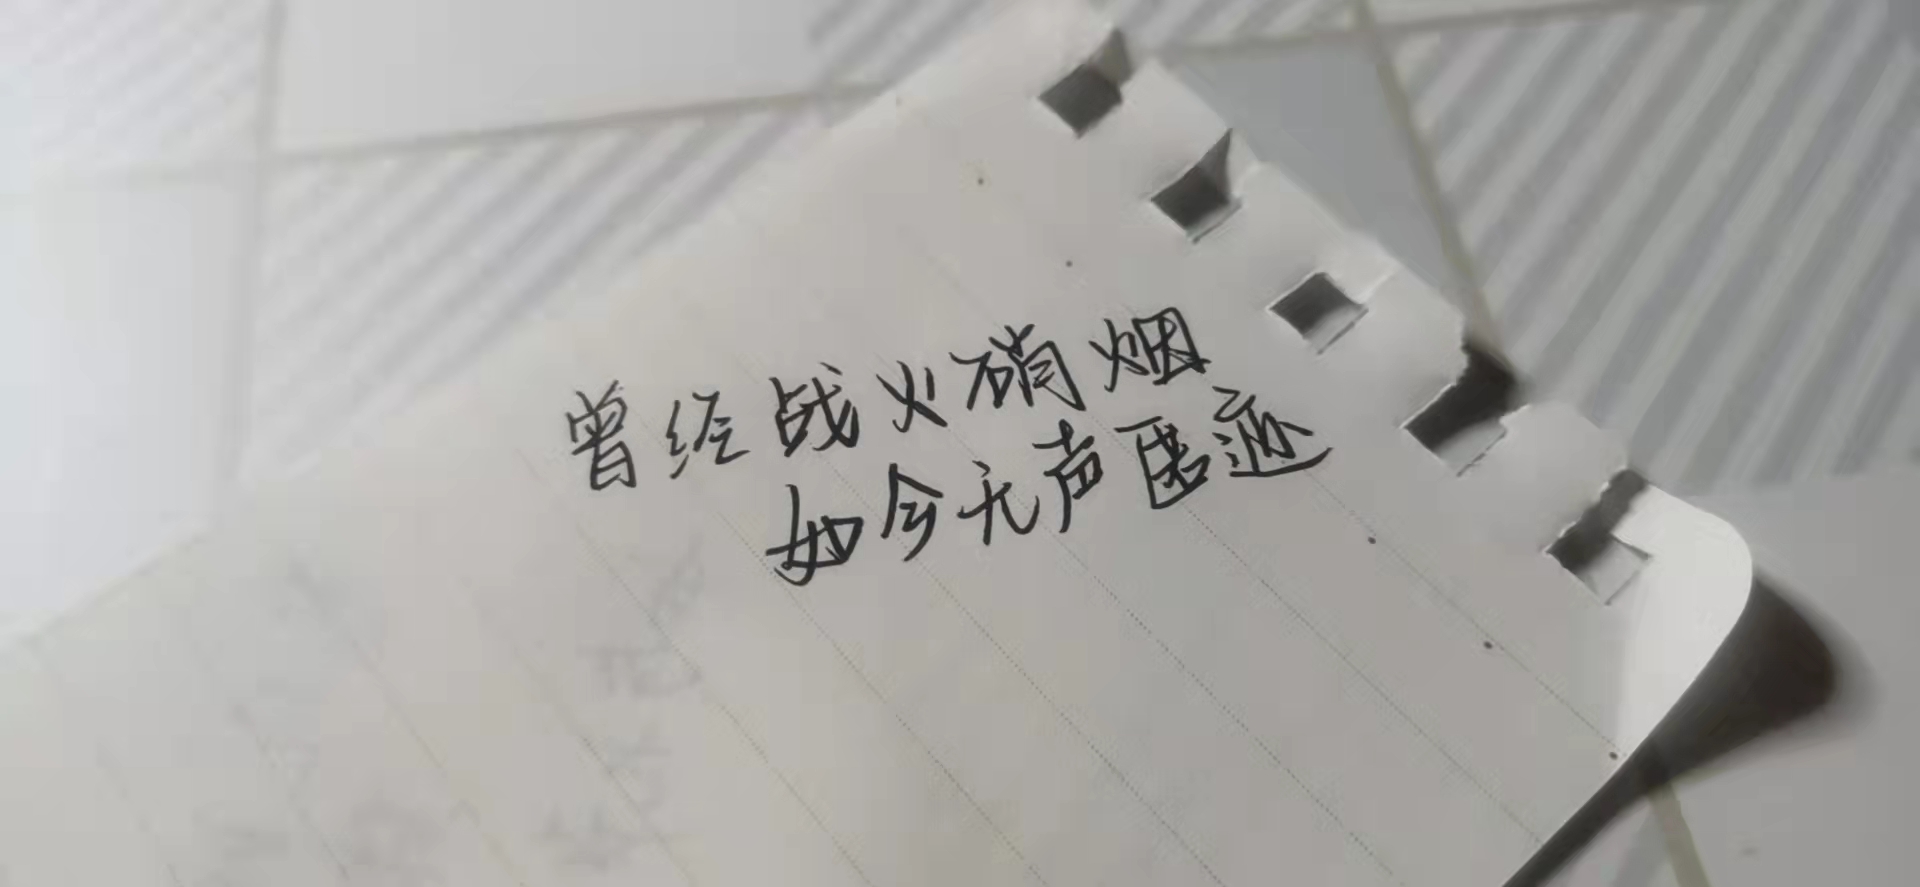 曾经战火硝烟
如今无声匿迹